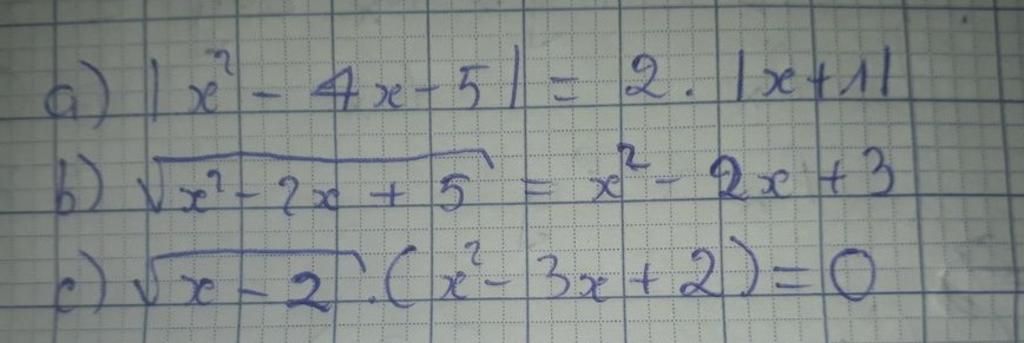 a) |x² - 4x - 5| = 2. |x+1|
b) √(x² - 2x + 5) = x² - 2x + 3
c) √(x - 2) . (x² - 3x + 2) = 0